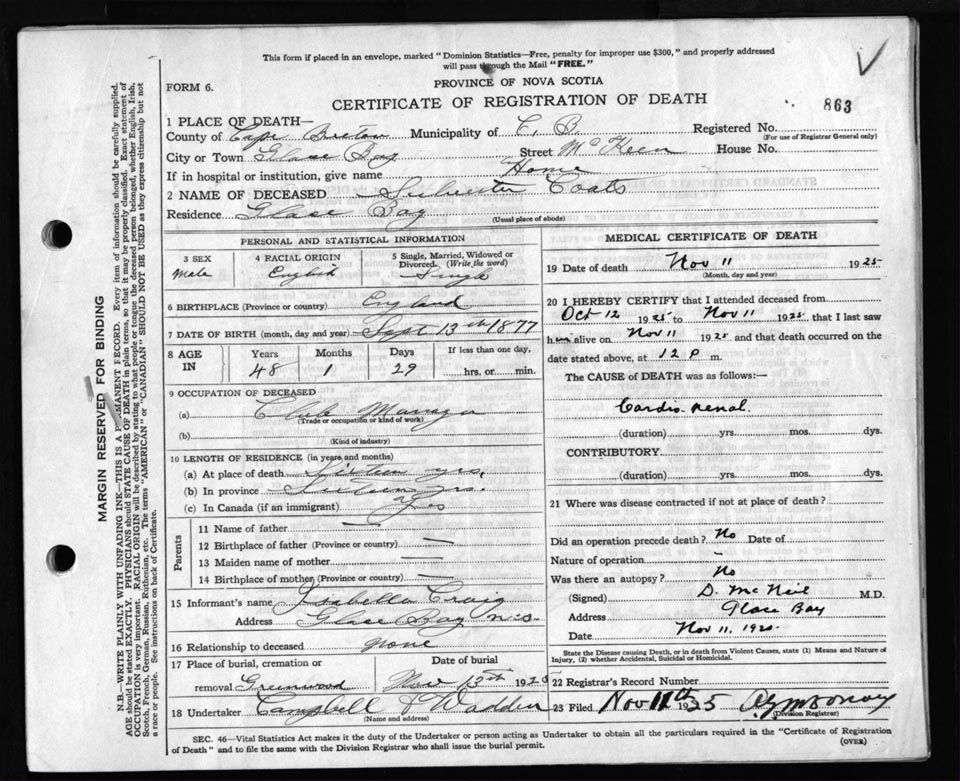 This form if placed in an envelope, marked "Dominion Statistics—Free, penalty for improper use $300," and properly addressed
will pass through the Mail "FREE."
FORM 6.
PROVINCE OF NOVA SCOTIA
CERTIFICATE OF REGISTRATION OF DEATH
863
MARGIN RESERVED FOR BINDING
N.B.—WRITE PLAINLY WITH UNFADING INK—THIS IS A PERMANENT RECORD. Every item of information should be carefully supplied.
AGE should be stated EXACTLY. PHYSICIANS should STATE CAUSE OF DEATH in plain terms, so that it may be properly classified. Exact statement of
OCCUPATION is very important. RACIAL ORIGIN will be described by stating to what people or tongue the deceased person belonged, whether English, Irish,
Scotch, French, German, Russian, Ruthenian, etc. The terms "AMERICAN" or "CANADIAN" SHOULD NOT BE USED as they express citizenship but not
a race or people. See instructions on back of Certificate.
1 PLACE OF DEATH—
County of Cape Breton Municipality of C. B. Registered No.
(For use of Registrar General only)
City or Town Glace Bay Street McKeen House No.
If in hospital or institution, give name Home
2 NAME OF DECEASED Coats
Residence Glace Bay
(Usual place of abode)
PERSONAL AND STATISTICAL INFORMATION
3 SEX 4 RACIAL ORIGIN 5 Single, Married, Widowed or
Divorced. (Write the word)
Male English Single
6 BIRTHPLACE (Province or country) England
7 DATE OF BIRTH (month, day and year) Sept 13th 1877
8 AGE IN Years Months Days If less than one day,
48 1 29 hrs. or min.
9 OCCUPATION OF DECEASED
(a) Club Manager
(Trade or occupation or kind of work)
(b)
(Kind of industry)
10 LENGTH OF RESIDENCE (in years and months)
(a) At place of death yrs.
(b) In province yrs.
(c) In Canada (if an immigrant) Yes
Parents
11 Name of father —
12 Birthplace of father (Province or country) —
13 Maiden name of mother —
14 Birthplace of mother (Province or country) —
15 Informant's name Isabella Craig
Address Glace Bay N.S.
16 Relationship to deceased none
17 Place of burial, cremation or Date of burial
removal Greenwood Nov 13th 1925
18 Undertaker Campbell & Wadden
(Name and address)
MEDICAL CERTIFICATE OF DEATH
19 Date of death Nov 11 1925
(Month, day and year)
20 I HEREBY CERTIFY that I attended deceased from
Oct 12 1925 to Nov 11 1925 that I last saw
him alive on Nov 11 1925 and that death occurred on the
date stated above, at 12 P m.
The CAUSE of DEATH was as follows:—
Cardio-renal
(duration) yrs. mos. dys.
CONTRIBUTORY
(duration) yrs. mos. dys.
21 Where was disease contracted if not at place of death?
Did an operation precede death? No Date of
Nature of operation —
Was there an autopsy? No
(Signed) D. McNeil M.D.
Address Glace Bay
Date Nov 11, 192
State the Disease causing Death, or in death from Violent Causes, state (1) Means and Nature of
Injury, (2) whether Accidental, Suicidal or Homicidal.
22 Registrar's Record Number
23 Filed Nov 11th 1925
(Division Registrar)
SEC. 46—Vital Statistics Act makes it the duty of the Undertaker or person acting as Undertaker to obtain all the particulars required in the "Certificate of Registration
of Death" and to file the same with the Division Registrar who shall issue the burial permit.
(OVER)